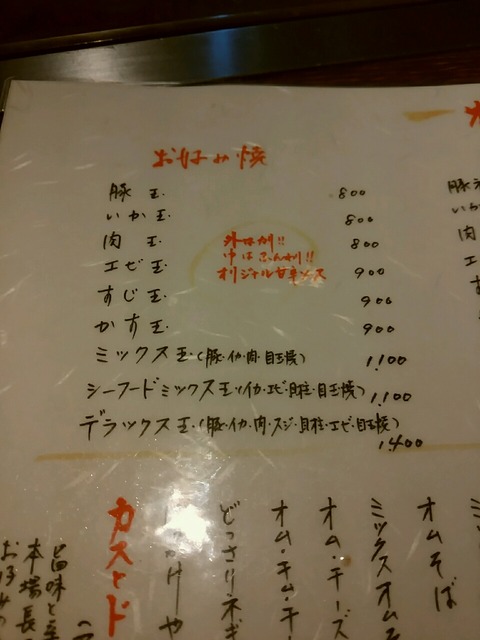 お好み焼
豚玉 800
いか玉 800
肉玉 800
エビ玉 900
すじ玉 900
かす玉 900
外はカリ!!
中はふんわり!!
オリジナル甘辛ソース
ミックス玉(豚・イカ・肉・目玉焼) 1,100
シーフードミックス玉(イカ・エビ・貝柱・目玉焼) 1,100
デラックス玉(豚・イカ・肉・スジ・貝柱・エビ・目玉焼) 1,400
豚
いか
肉
エ
オムそば
ミックスオム
オム・チーズ
オム・キムチ
どっさりネギ
カスとド
旨味と
本場長
お好み